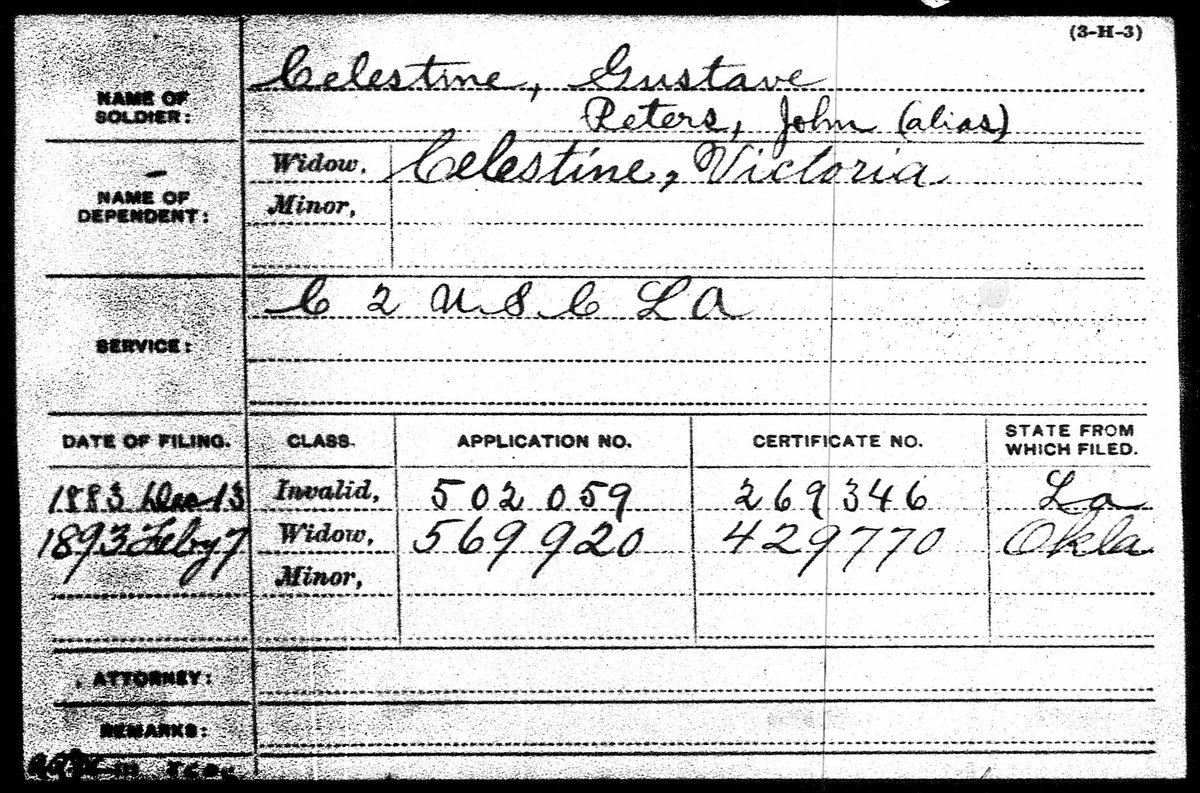 (3-H-3)
NAME OF SOLDIER: Celestine, Gustave
Peters, John (alias)
NAME OF DEPENDENT: Widow, Celestine, Victoria
Minor,
SERVICE: C 2 U S C La
DATE OF FILING. CLASS. APPLICATION NO. CERTIFICATE NO. STATE FROM WHICH FILED.
1883 Dec 13 Invalid, 502 059 269 346 La
1893 Feby 7 Widow, 569 920 429770 Okla
Minor,
ATTORNEY:
REMARKS: